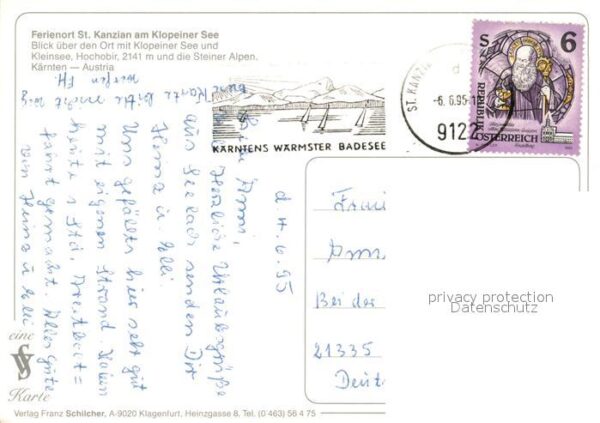 Ferienort St. Kanzian am Klopeiner See
Blick über den Ort mit Klopeiner See und
Kleinsee, Hochobir, 2141 m und die Steiner Alpen.
Kärnten — Austria
KÄRNTENS WÄRMSTER BADESEE
ST. KANZI
-6. 6.95-1
9122
S 6
REPUBLIK
ÖSTERREICH
d 4.6.95
Anni,
Herzliche Urlaubsgrüße
aus Seelach senden Dir
Heinz u. Elli.
Uns gefällts hier sehr gut
mit eigenen Strand. Haben
heute 1 Std.
fahrt gemacht. Alles Gute
von Heinz u Elli
Karte bitte nicht weg
werfen
Bei der
21335
privacy protection
www.ansichtskarten-center.de
eine
Karte
Verlag Franz Schilcher, A-9020 Klagenfurt, Heinzgasse 8, Tel. (0 463) 56 4 75